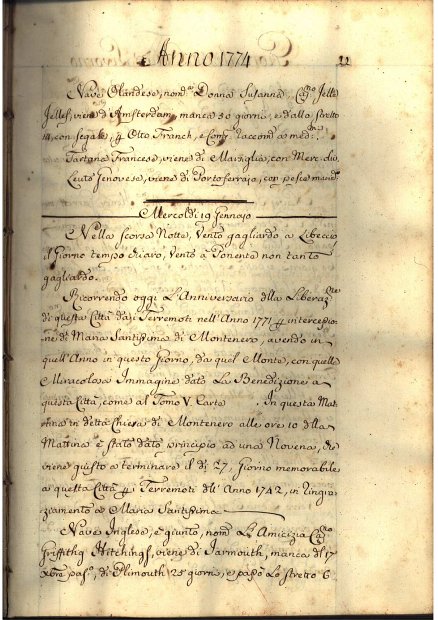 Anno 1774
Nave Olandese, nom.ta Donna Susanna, Cap.no Jelle
Jelles, viene d'Amsterdam, manca 50 giorni, e dallo stretto
14, con segale, p Otto Franch, e Conf. Raccom. a med.mi
Tartana Francese, viene di Marsiglia, con Merc. div.
Leuto Genovese, viene di Portoferraio, con pesce marid.
Mercoldi 19 Gennajo
Nella scorsa Notte, vento gagliardo a Libeccio
il Giorno tempo chiaro, vento a Ponente non tanto
gagliardo.
Ricorrendo oggi L'Anniversario dlla Liberaz.ne
di questa Città da i Terremoti nell'Anno 1771 p intercessio-
ne di Maria Santissima di Montenero, avendo in
quell'Anno in questo Giorno, da quel Monte, con quella
Miracolosa Immagine dato La Benedizione a
questa Città, come al Tomo V. Carte . In questa Mat
tina in detta Chiesa di Montenero alle ore 10 dlla
Mattina è stato dato principio ad una Novena, che
viene questo a terminare il dì 27, Giorno memorabile
a questa Città p i Terremoti dll'Anno 1742, in ringra-
ziamento a Maria Santissima
Nave Inglese, è giunto, nom. L'Amicizia Cap.no
Griffithg Hitchings, viene di Jarmouth, manca dl 17
Xbre pas.o, di Plimouth 25 giorni, e passò lo stretto 6